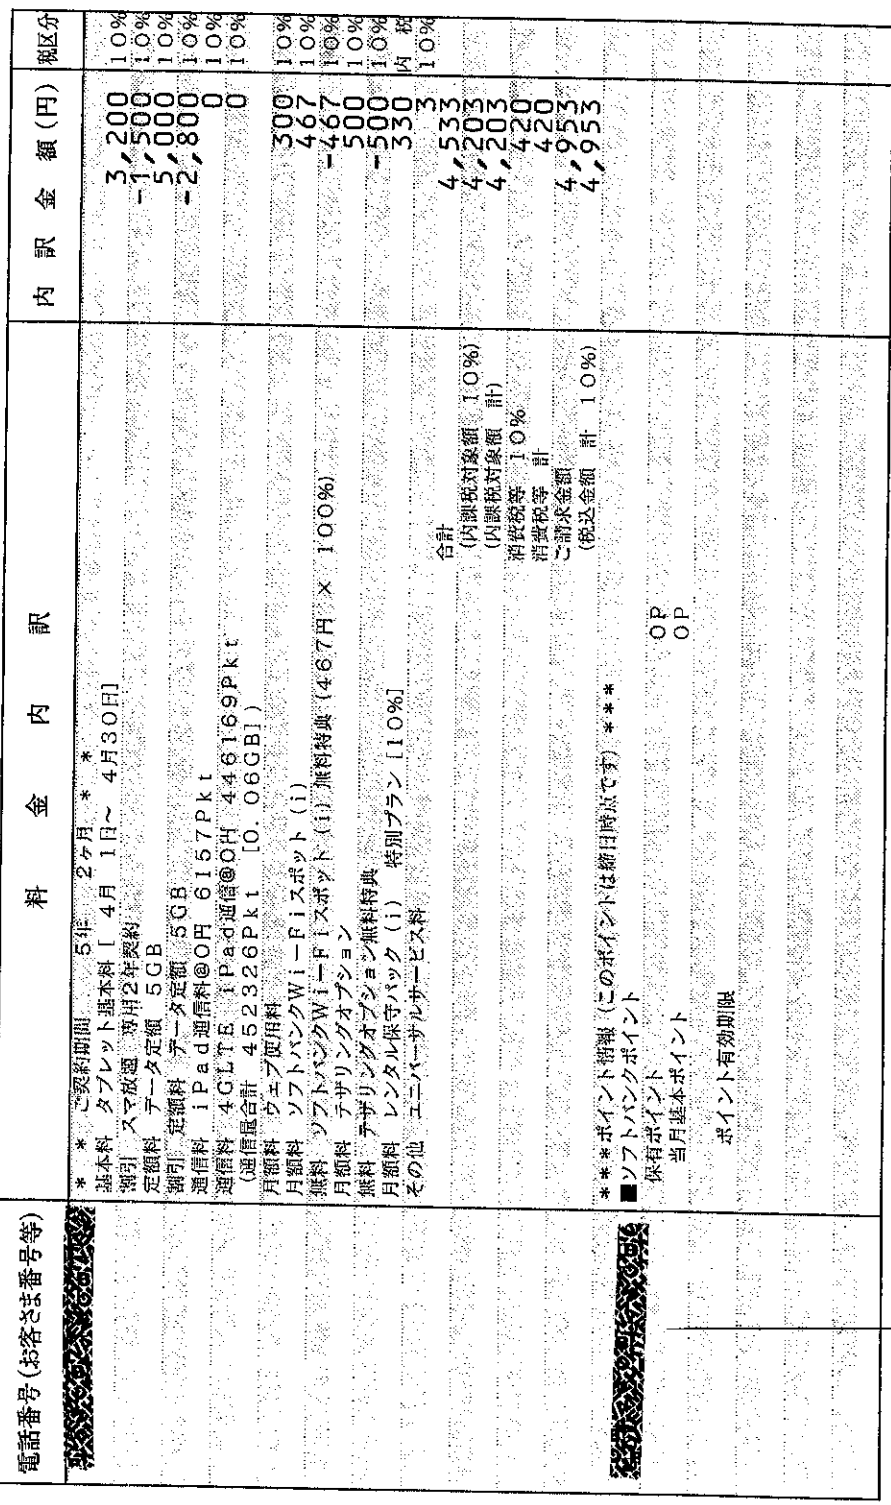 電話番号(お客さま番号等) 料金内訳 内訳金額(円) 税区分
* * ご契約期間 5年 2ヶ月 * *
基本料 タブレット基本料[ 4月 1日~ 4月30日] 3,200 10%
割引 スマ放題 専用2年契約 -1,500 10%
定額料 データ定額 5GB 5,000 10%
割引 定額料 データ定額 5GB -2,800 10%
通信料 iPad通信料@0円 6157Pkt 0 10%
通信料 4GLTE iPad通信@0円 446169Pkt 0 10%
(通信量合計 452326Pkt [0.06GB])
月額料 ウェブ使用料 300 10%
月額料 ソフトバンクWi-Fiスポット(i) 467 10%
無料 ソフトバンクWi-Fiスポット(i)無料特典(467円 × 100%) -467 10%
月額料 テザリングオプション 500 10%
無料 テザリングオプション無料特典 -500 10%
月額料 レンタル保守パック(i) 特別プラン[10%] 330 内 税
その他 ユニバーサルサービス料 3 10%
合計 4,533
(内課税対象額 10%) 4,203
(内課税対象額 計) 4,203
消費税等 10% 420
消費税等 計 420
ご請求金額 4,953
(税込金額 計 10%) 4,953
***ポイント情報(このポイントは締日時点です)***
■ソフトバンクポイント
保有ポイント 0P
当月基本ポイント 0P
ポイント有効期限